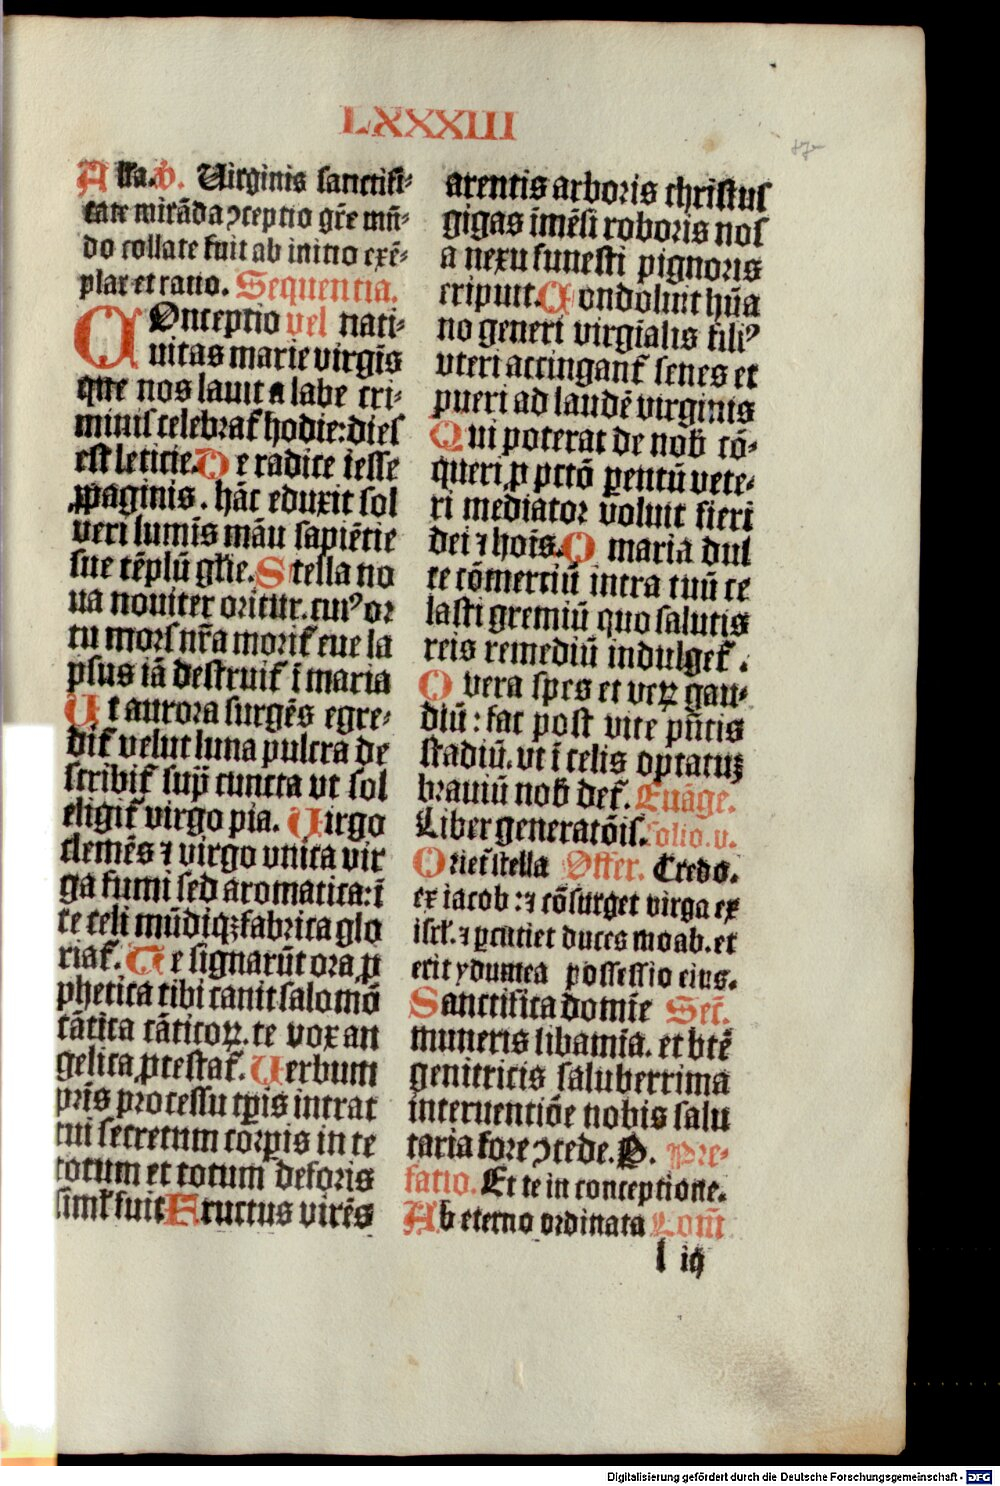 LXXXIII
Alla. v̄. Uirginis sanctifi⸗
tate mirāda ꝯceptio gr̄e mū⸗
do collate fuit ab initio exē⸗
plar et ratio. Sequentia.
COnceptio vel nati⸗
uitas marie virgīs
que nos lauit a labe cri⸗
minis celebrat᷑ hodie: dies
est leticie. De radice iesse
ꝓpaginis. hāc eduxit sol
veri lumīs manu sapiētie
sue tēplū gl̄ie. Stella no
ua nouiter oritur. cuiꝰ or
tu mors nr̄a morit᷑ eue la
psus iā destruit᷑ ī maria
Ut aurora surgēs egre⸗
dit᷑ velut luna pulcra de
scribit᷑ suꝑ cuncta vt sol
eligit᷑ virgo pia. Uirgo
clemēs ⁊ virgo vnica vir
ga fumi sed aromatica: ī
te celi mūdiqꝫ fabrica glo
riat᷑. Te signarūt ora ꝓ
phetica tibi canit salomō
cātica cāticoꝝ. te vox an
gelica ꝓtestat᷑. Uerbum
pr̄is processu tꝑis intrat
tui secretum corꝑis in te
totum et totum deforis
siml᷑ fuit Fructus virēs
arentis arboris christus
gigas īmēsi roboris nos
a nexu funesti pignoris
eripuit. Condoluit hūa
no generi virgīalis filiꝰ
vteri accingant᷑ senes et
pueri ad laudē virginis
Qui poterat de nob̄ cō⸗
queri ꝓ pctō ꝑentū vete⸗
ri mediator voluit fieri
dei ⁊ hoīs. O maria dul
ce cōmerciū intra tuū ce
lasti gremiū quo salutis
reis remediū indulget᷑.
O vera spes et veꝝ gau⸗
diū: fac post vite pn̄tis
stadiū. vt ī celis optatuꝫ
brauiū nob̄ det᷑. Euāge.
Liber generatōis. folio. v.
Oriet᷑ stella Offer. Credo.
ex iacob: ⁊ cōsurget virga ex
isrl᷑. ⁊ ꝑcutiet duces moab. et
erit ydumea possessio eius.
Sanctifica domīe Sec̄.
muneris libamīa. et btē
genitricis saluberrima
interuentiōe nobis salu
taria fore ꝯcede. P. Pre⸗
fatio. Et te in conceptione.
Ab eterno ordinata Com̄
l iij
Digitalisierung gefördert durch die Deutsche Forschungsgemeinschaft - DFG